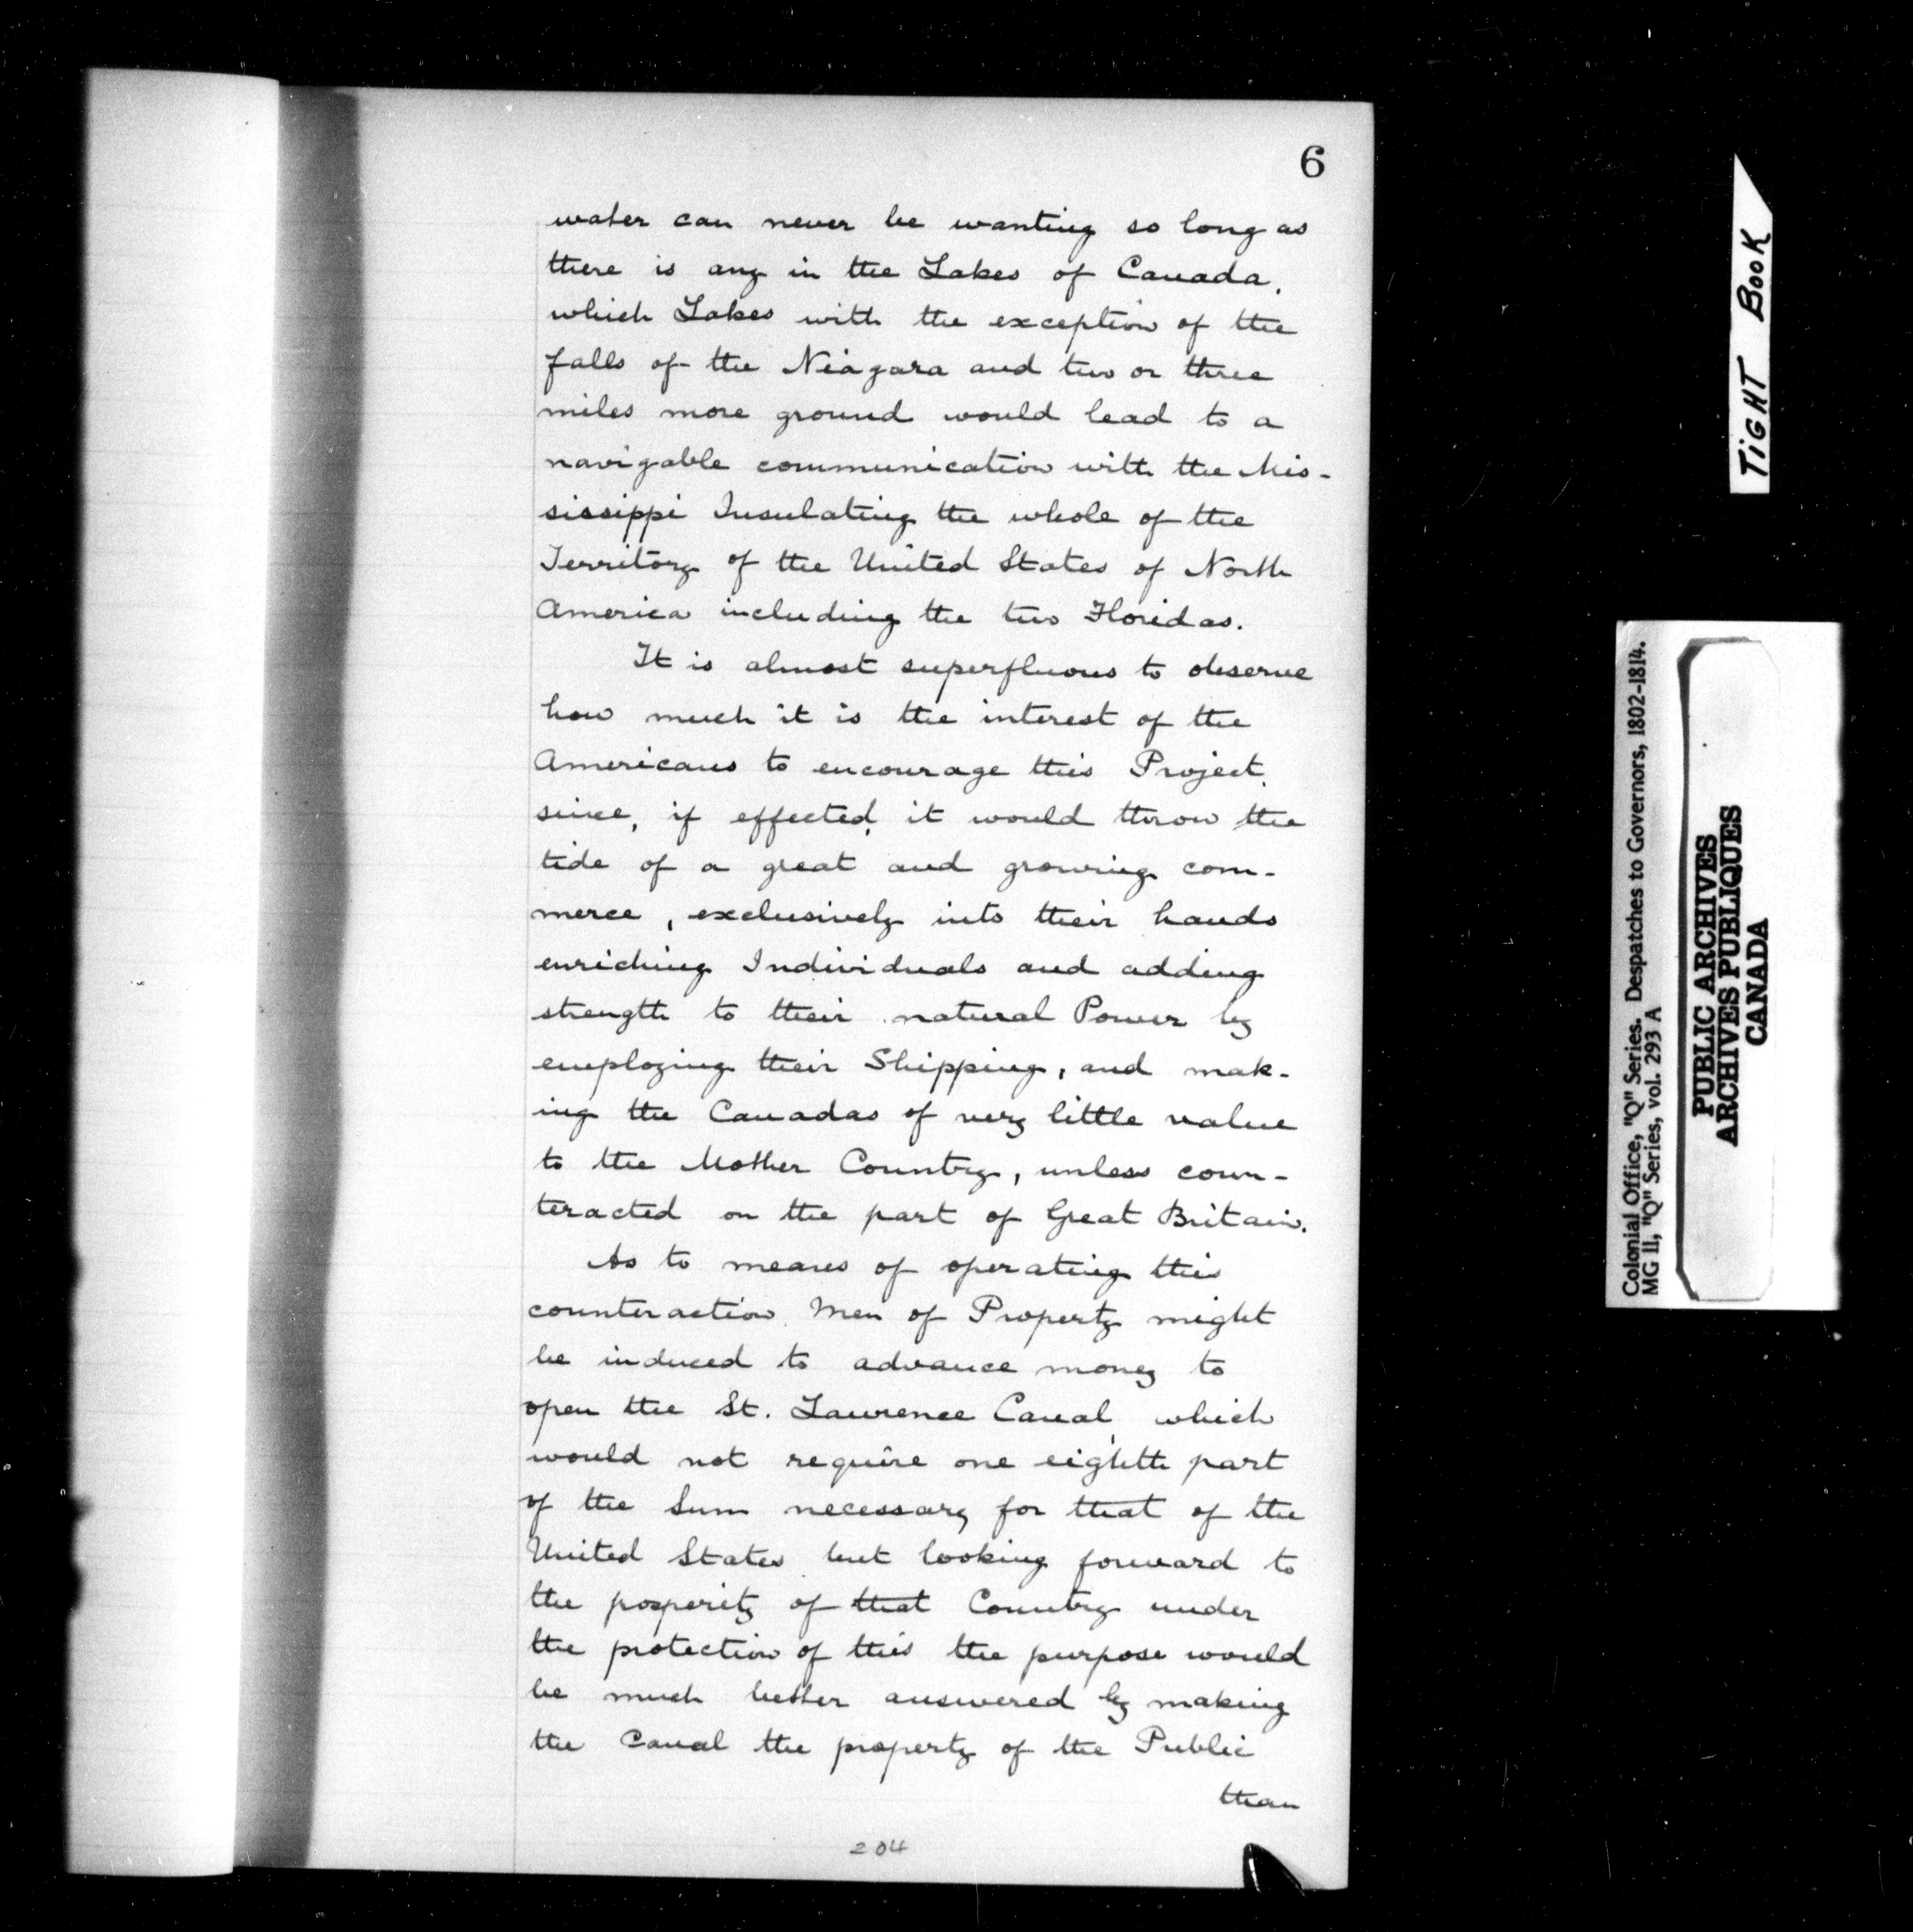 6
water can never be wanting so long as
there is any in the Lakes of Canada,
which Lakes with the exception of the
falls of the Niagara and two or three
miles more ground would lead to a
navigable communication with the Mis-
sissippi Insulating the whole of the
Territory of the United States of North
America including the two Floridas.
It is almost superfluous to observe
how much it is the interest of the
Americans to encourage this Project,
since, if effected, it would throw the
tide of a great and growing com-
merce, exclusively into their hands
enriching Individuals and adding
strength to their natural Power by
employing their Shipping, and mak-
ing the Canadas of very little value
to the Mother Country, unless coun-
teracted on the part of Great Britain.
As to means of operating this
counteraction, Men of Property might
be induced to advance money to
open the St. Lawrence Canal, which
would not require one eighth part
of the Sum necessary for that of the
United States but looking forward to
the prosperity of that Country under
the protection of this the purpose would
be much better answered by making
the Canal the property of the Public
than
204
TIGHT BOOK
Colonial Office, "Q" Series. Despatches to Governors, 1802-1814.
MG 11, "Q" Series, vol. 293 A
PUBLIC ARCHIVES
ARCHIVES PUBLIQUES
CANADA